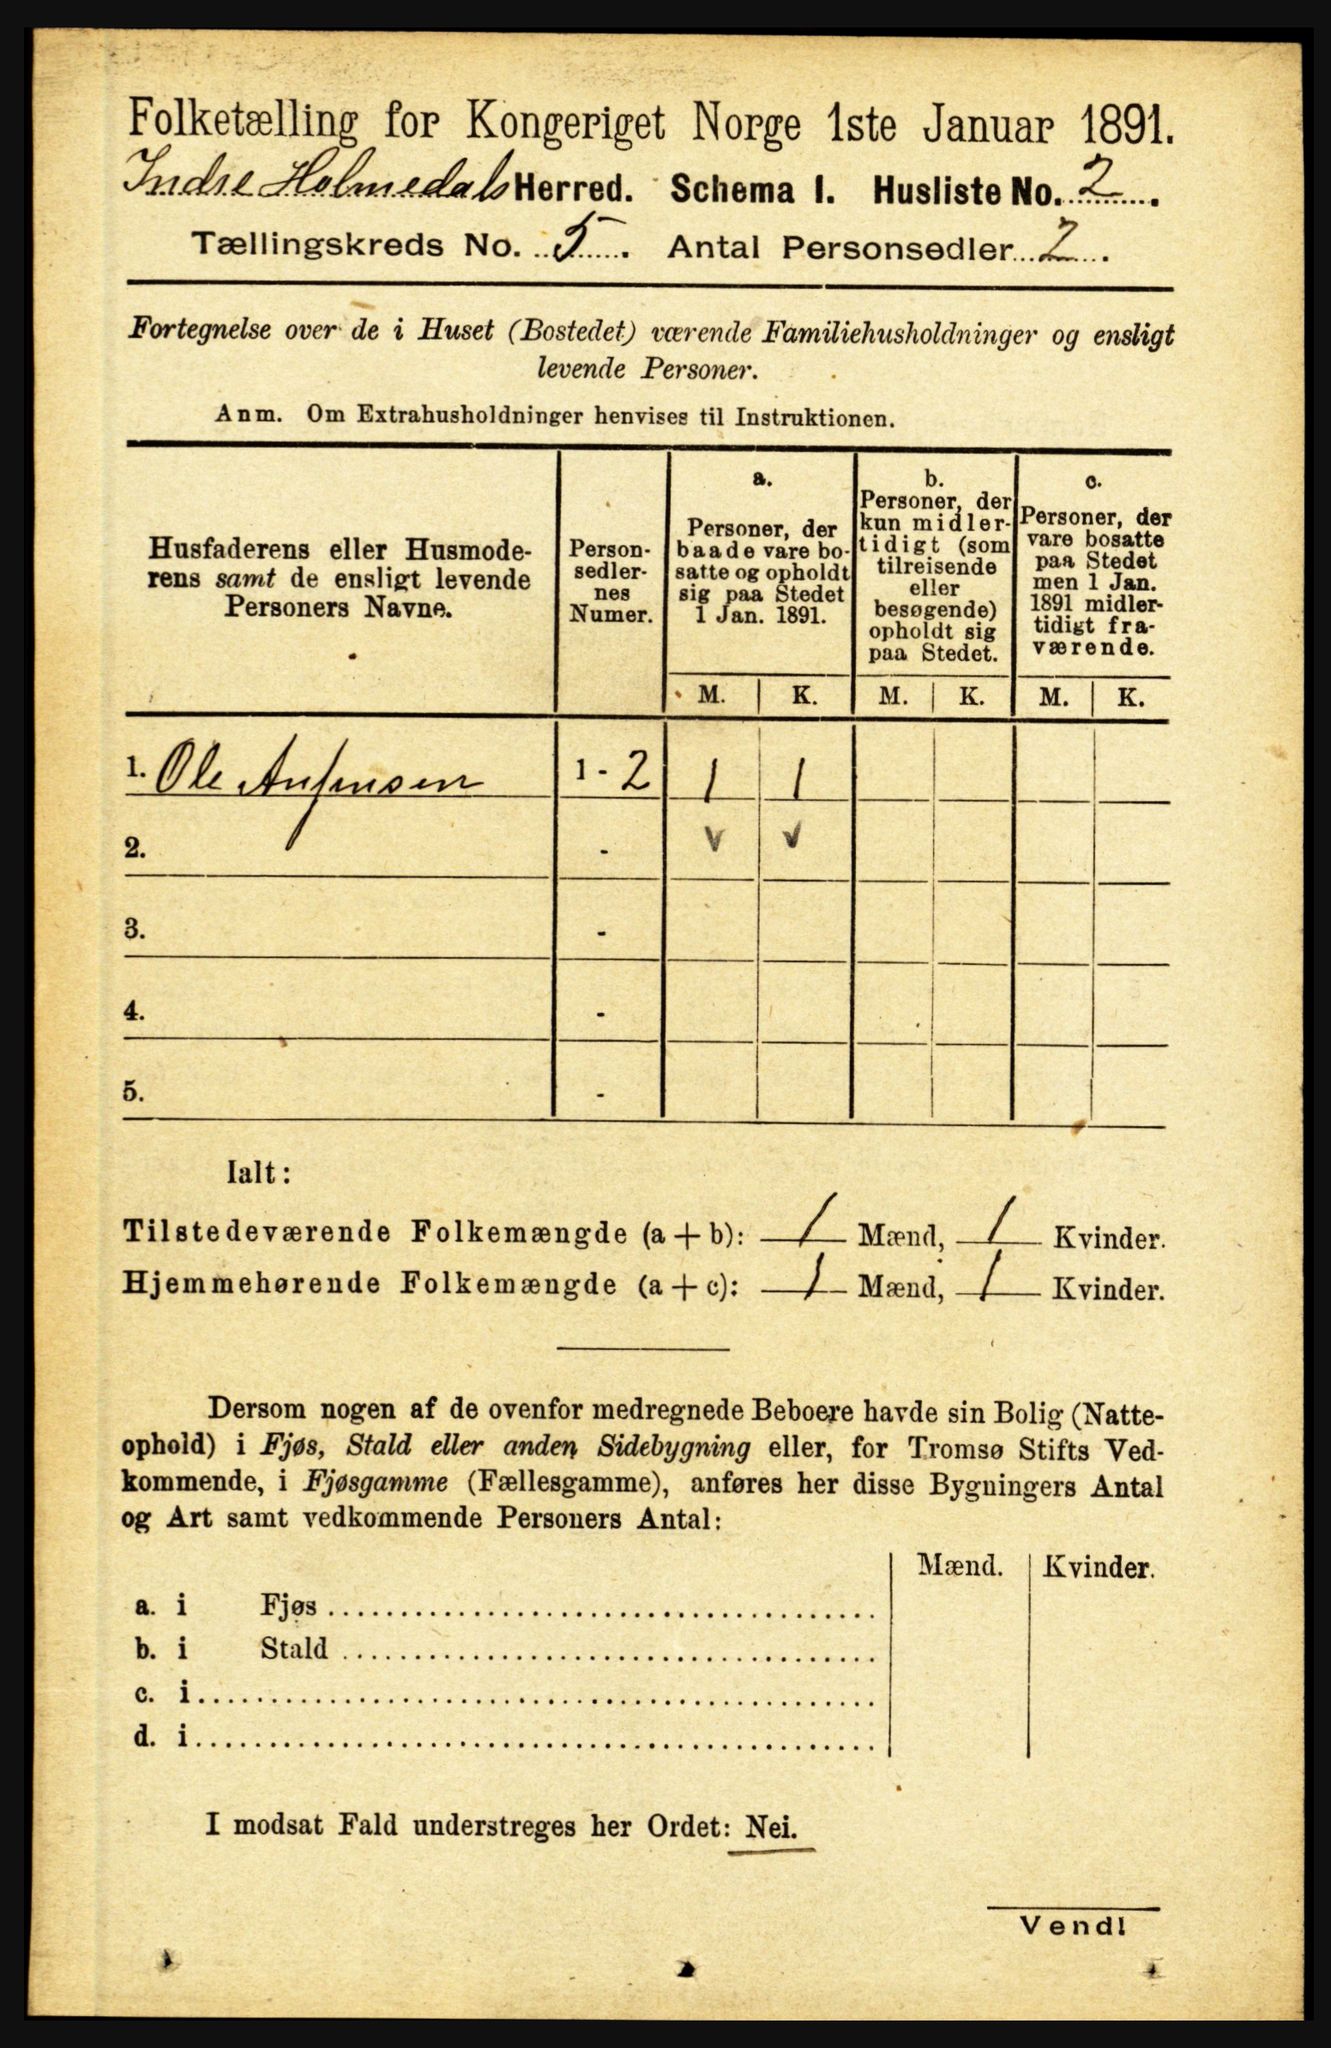 Folketælling for Kongeriget Norge 1ste Januar 1891.
Indre Holmedals Herred. Schema I. Husliste No. 2.
Tællingskreds No. 5. Antal Personsedler 2.
Fortegnelse over de i Huset (Bostedet) værende Familiehusholdninger og ensligt
levende Personer.
Anm. Om Extrahusholdninger henvises til Instruktionen.
Husfaderens eller Husmode-
rens samt de ensligt levende
Personers Navne.
Person-
sedler-
nes
Numer.
a.
Personer, der
baade vare bo-
satte og opholdt
sig paa Stedet
1 Jan. 1891.
b.
Personer, der
kun midler-
tidigt (som
tilreisende
eller
besøgende)
opholdt sig
paa Stedet.
c.
Personer, der
vare bosatte
paa Stedet
men 1 Jan.
1891 midler-
tidigt fra-
værende.
M. K. M. K. M. K.
1. Ole 1 - 2 1 1
2. - v v
3. -
4. -
5. -
Ialt:
Tilstedeværende Folkemængde (a + b): 1 Mænd, 1 Kvinder.
Hjemmehørende Folkemængde (a + c): 1 Mænd, 1 Kvinder.
Dersom nogen af de ovenfor medregnede Beboere havde sin Bolig (Natte-
ophold) i Fjøs, Stald eller anden Sidebygning eller, for Tromsø Stifts Ved-
kommende, i Fjøsgamme (Fællesgamme), anføres her disse Bygningers Antal
og Art samt vedkommende Personers Antal:
Mænd. Kvinder.
a. i Fjøs
b. i Stald
c. i
d. i
I modsat Fald understreges her Ordet: Nei.
Vend!